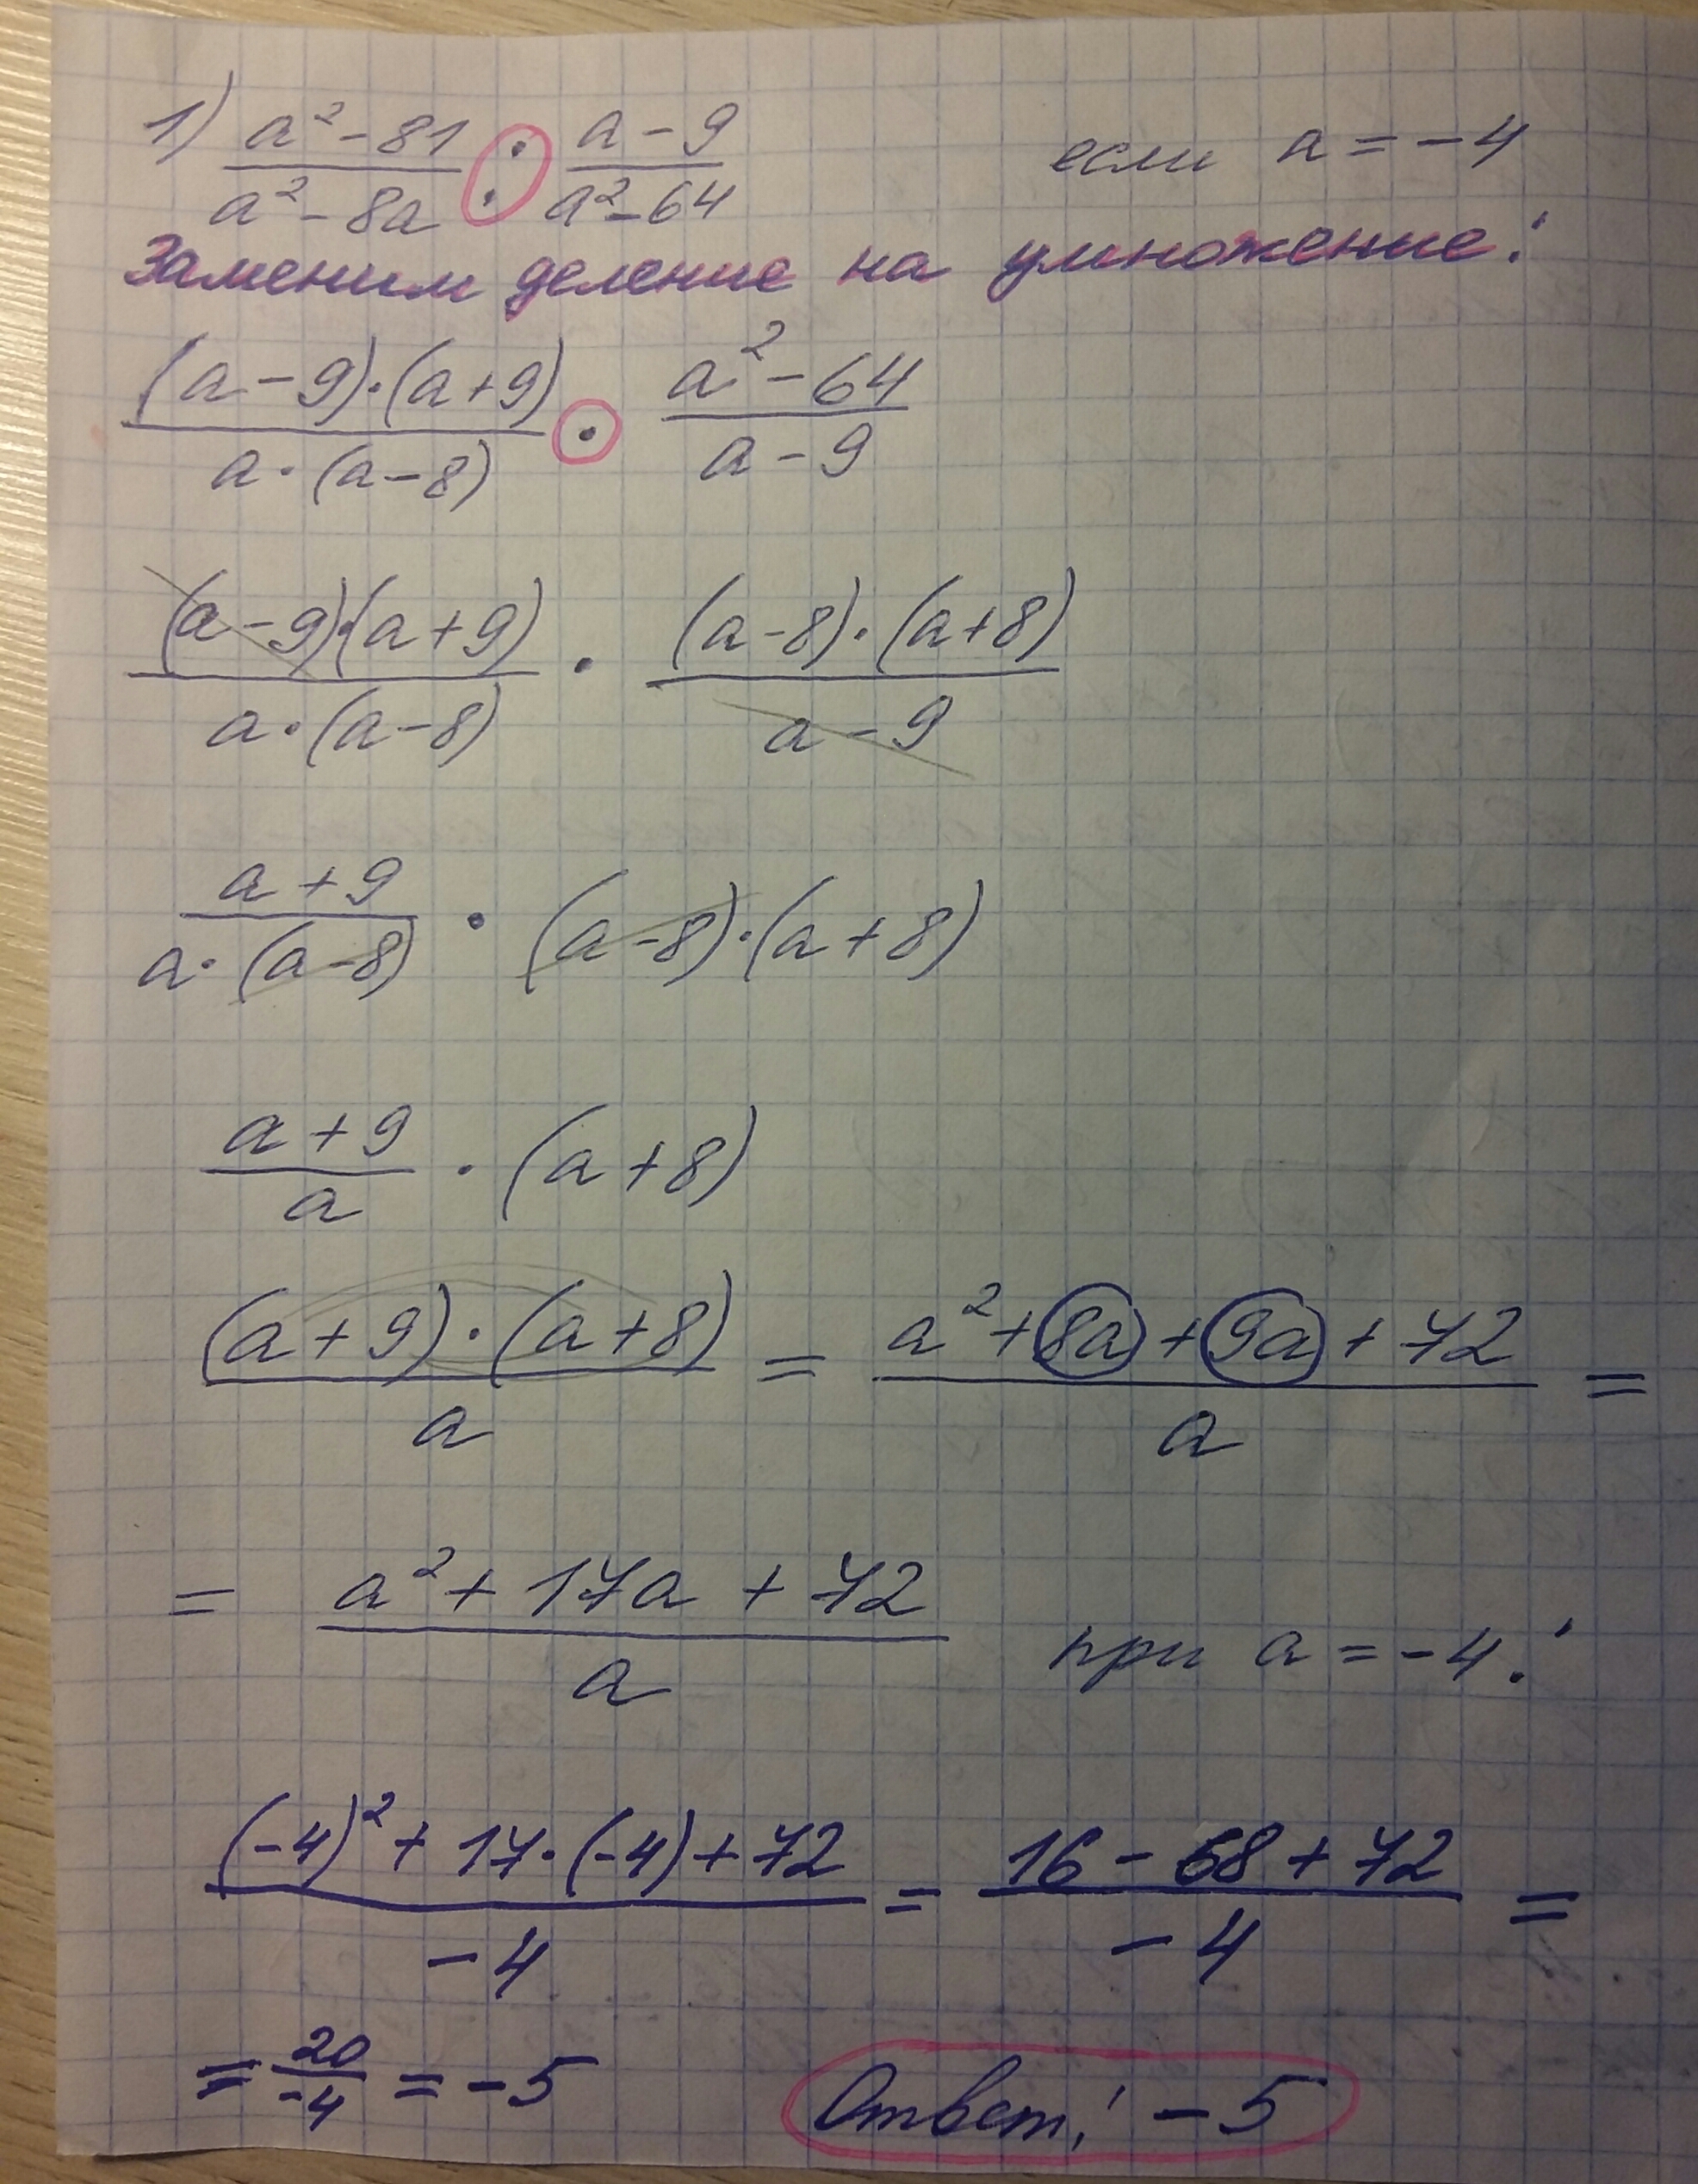 1) (a² - 81)/(a² - 8a) : (a - 9)/(a² - 64) если a = -4
Заменим деление на умножение:
((a - 9)·(a + 9))/(a·(a - 8)) · (a² - 64)/(a - 9)
((a - 9)·(a + 9))/(a·(a - 8)) · ((a - 8)·(a + 8))/(a - 9)
(a + 9)/(a·(a - 8)) · (a - 8)·(a + 8)
(a + 9)/a · (a + 8)
((a + 9)·(a + 8))/a = (a² + 8a + 9a + 72)/a =
= (a² + 17a + 72)/a при a = -4:
((-4)² + 17·(-4) + 72)/(-4) = (16 - 68 + 72)/(-4) =
= 20/(-4) = -5 Ответ: -5